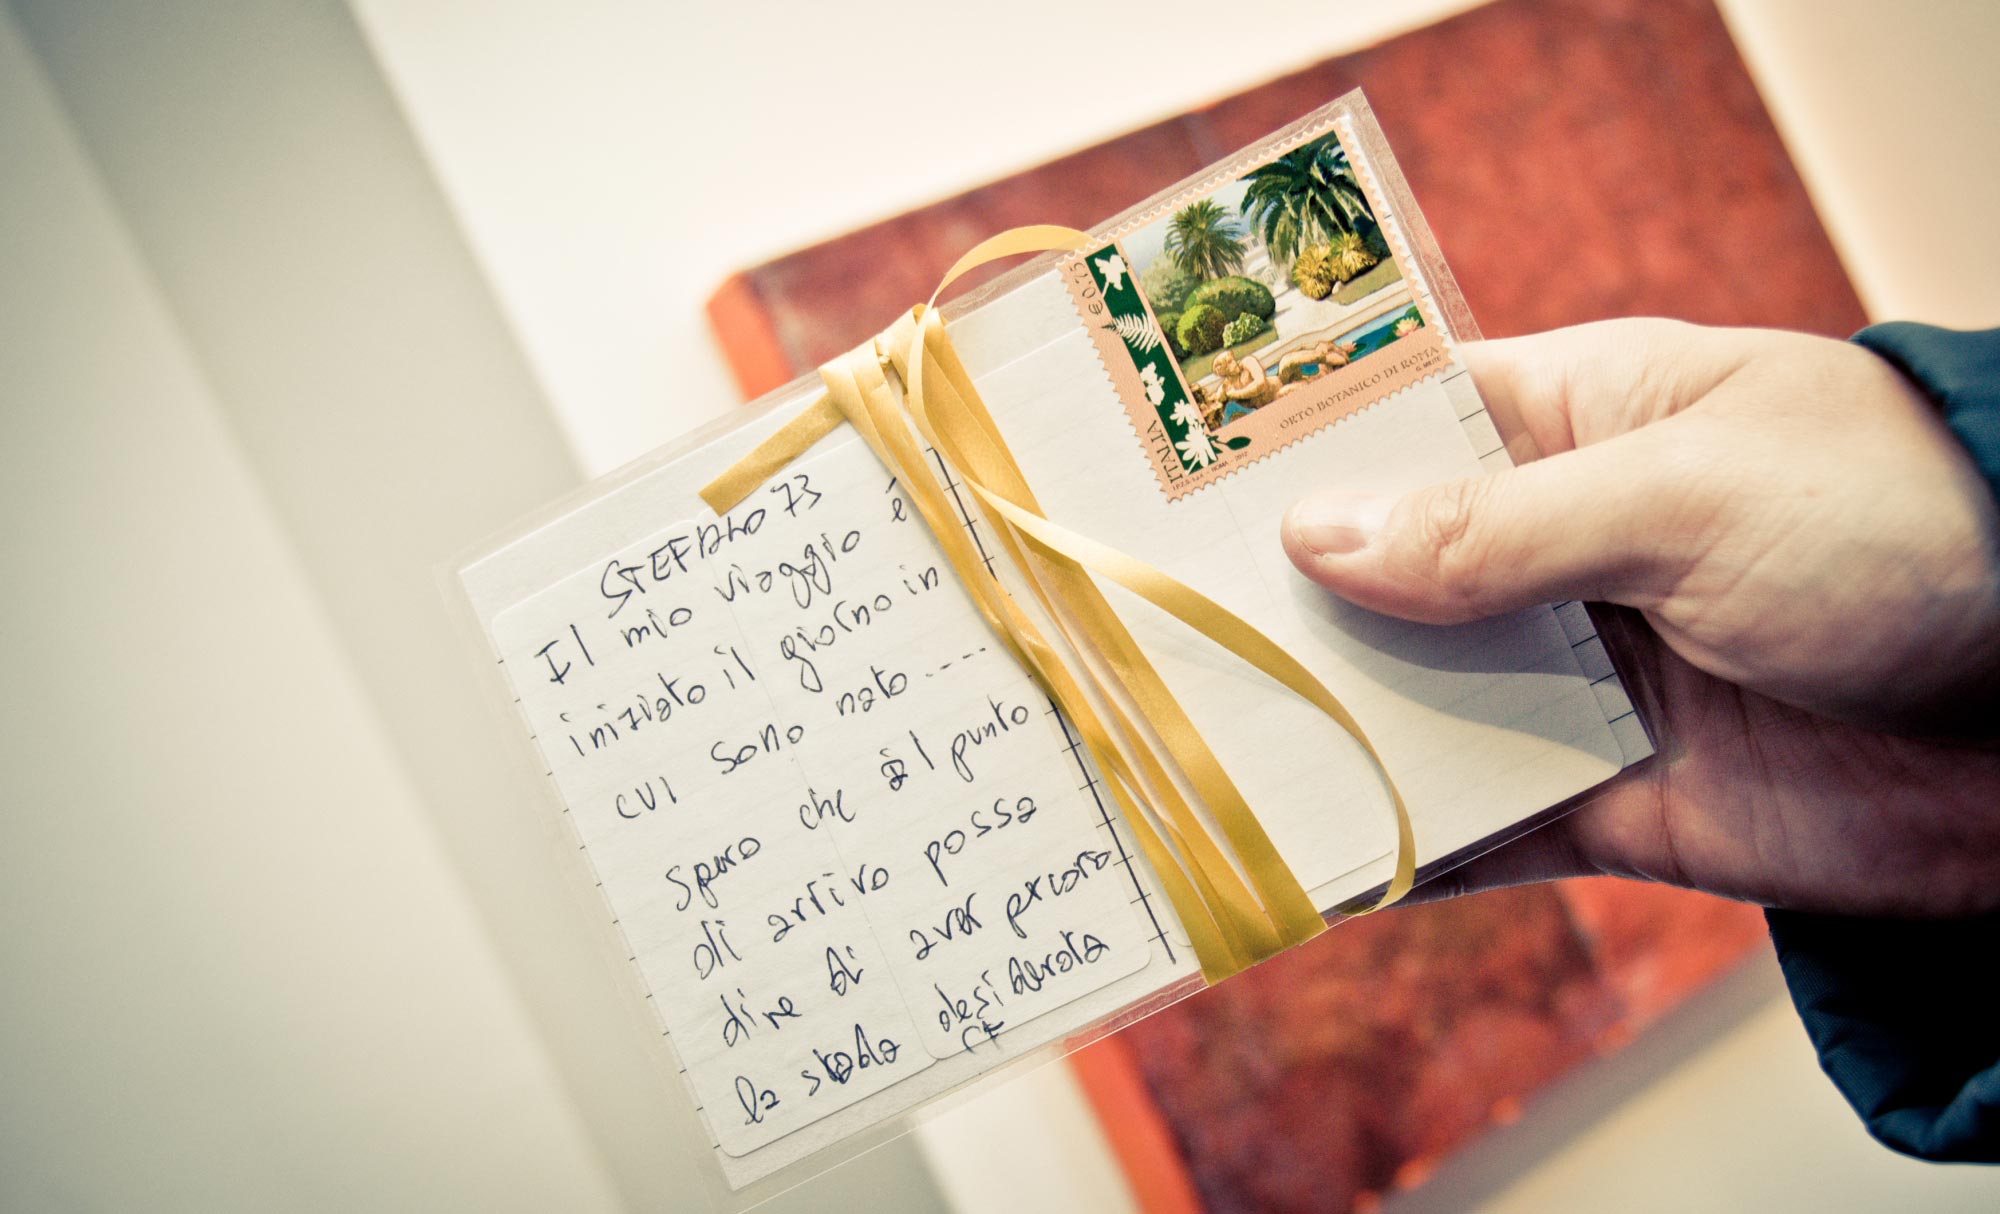 STEFANO 73
Il mio viaggio è
iniziato il giorno in
cui sono nato ....
spero che il punto
di arrivo possa
dire di aver percorso
la strada desiderata
€0,75
ITALIA
I.P.Z.S. S.p.A. - ROMA - 2012
ORTO BOTANICO DI ROMA
G. MILITE